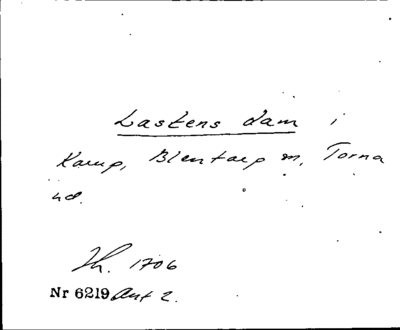 Lastens dam i
Karup, Blentarp sn, Torna
hd.
Th. 1706
Nr 6219 Ant 2.